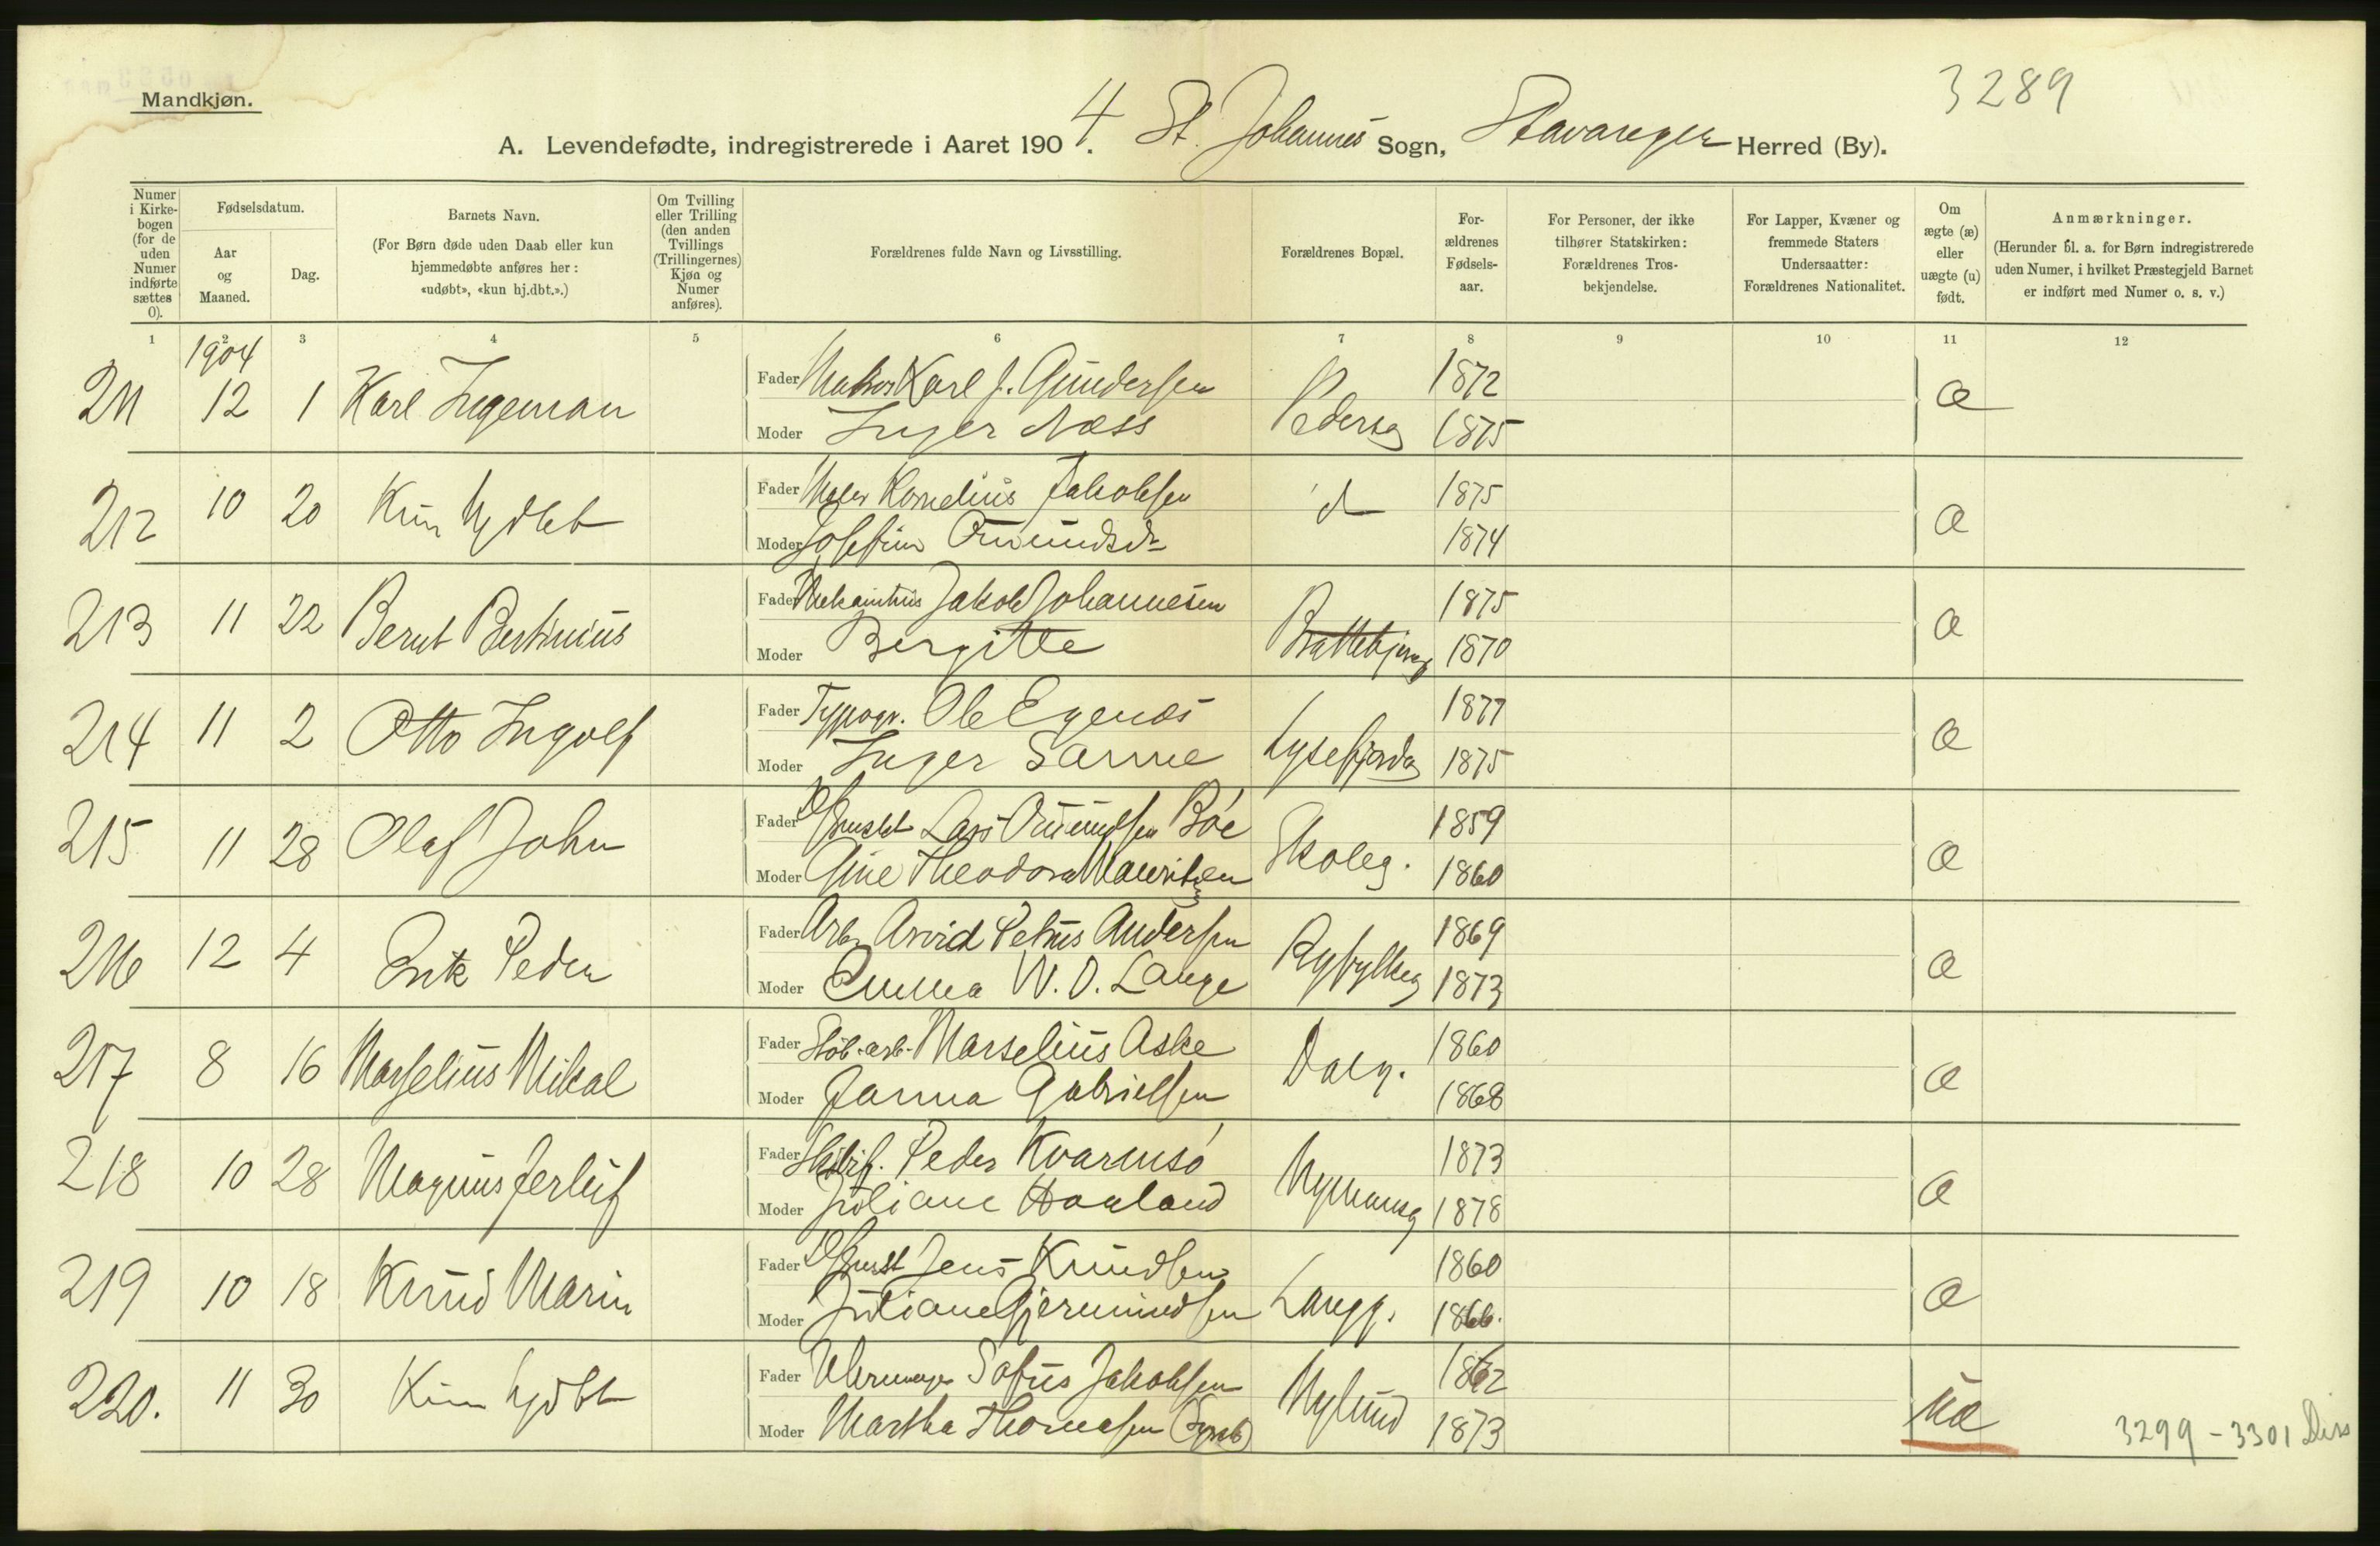 3289
Mandkjøn.
A. Levendefødte, indregistrerede i Aaret 1904. St. Johannes Sogn, Stavanger Herred (By).
Numer i Kirkebogen (for de uden Numer indførte sættes 0).
Fødselsdatum.
Aar og Maaned.
Dag.
Barnets Navn.
(For Børn døde uden Daab eller kun hjemmedøbte anføres her: «udøbt», «kun hj.dbt.».)
Om Tvilling eller Trilling (den anden Tvillings (Trillingernes) Kjøn og Numer anføres).
Forældrenes fulde Navn og Livsstilling.
Forældrenes Bopæl.
For-ældrenes Fødsels-aar.
For Personer, der ikke tilhører Statskirken: Forældrenes Tros-bekjendelse.
For Lapper, Kvæner og fremmede Staters Undersaatter: Forældrenes Nationalitet.
Om ægte (æ) eller uægte (u) født.
Anmærkninger.
(Herunder bl. a. for Børn indregistrerede uden Numer, i hvilket Præstegjeld Barnet er indført med Numer o. s. v.)
1 2 3 4 5 6 7 8 9 10 11 12
1904
211 12 1 Karl Ingeman Fader Matros Karl J. Gundersen Pedersg 1872 æ
Moder Inger Næss 1875
212 10 20 Kun hjdbt Fader Maler Kornelius Jakobsen d 1875 æ
Moder Josefine Omundsdr 1874
213 11 22 Bernt Bertinius Fader Jakob Johannesen 1875 æ
Moder Bergitte 1870
214 11 2 Otto Ingolf Fader Typogr. Ole Egenæs Lysefjordg 1877 æ
Moder Inger Sanne 1875
215 11 28 Olaf John Fader Lars Omundsen Bøe Skoleg. 1859 æ
Moder Gine Theodora Mauritzen 1860
216 12 4 Erik Peder Fader Arb. Arvid Petrus Andersen Ryfylkeg 1869 æ
Moder Emma W. O. Lange 1873
217 8 16 Marselius Mikal Fader Støb.arb. Marselius Aske Dalg. 1860 æ
Moder Janna Gabrielsen 1868
218 10 28 Magnus Jerluf Fader Peder Kvarmsø Nymansg 1873 æ
Moder Juliane Haaland 1878
219 10 18 Knud Marin Fader Jens Knudsen Langg. 1860 æ
Moder Juliane Gjermundsen 1866.
220. 11 30 Kun hjdbt Fader Uhrmager Sofus Jakobsen Nylund 1862 uæ
Moder Martha Thomasen 1873
3299 - 3301